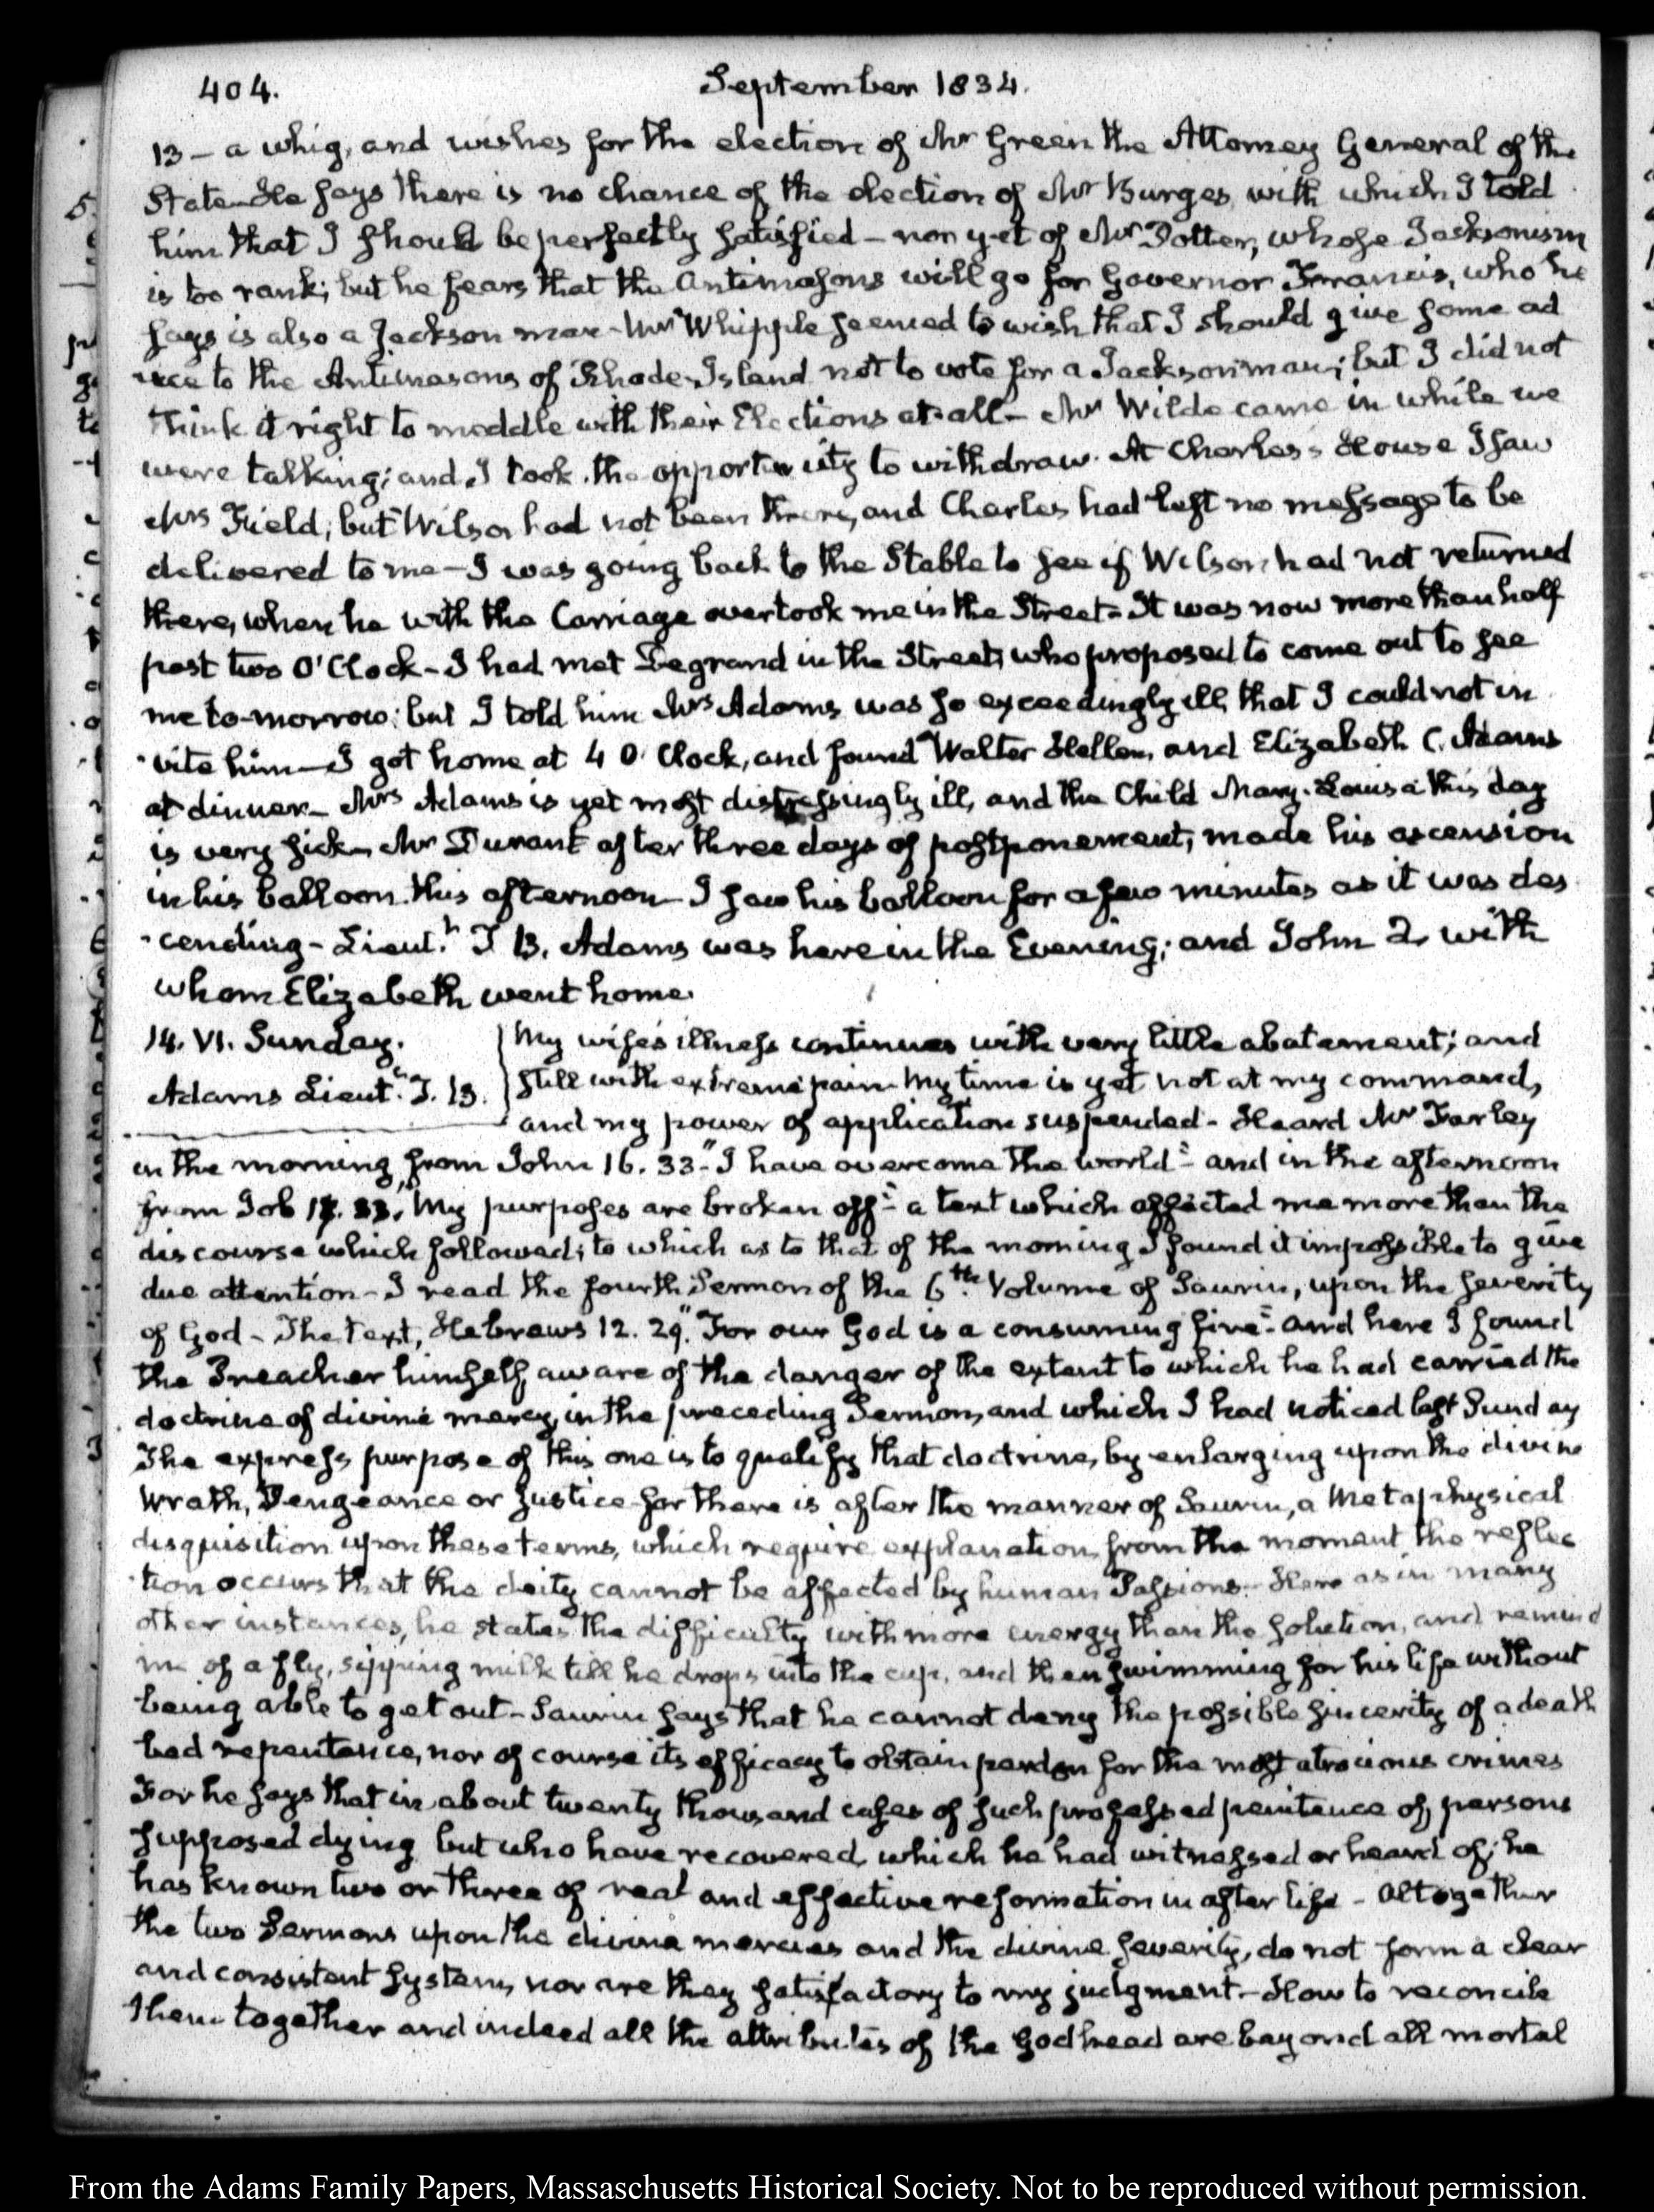 404.
September 1834.
13 – a whig, and wishes for the election of Mr Green the Attorney General of the
State – He says there is no chance of the election of Mr Burges, with which I told
him that I should be perfectly satisfied – nor yet of Mr Potter, whose Jacksonism
is too rank; but he fears that the Antimasons will go for Governor Francis, who he
says is also a Jackson man – Mr Whipple seemed to wish that I should give some ad
vice to the Antimasons of Rhode-Island not to vote for a Jackson man; but I did not
think it right to meddle with their Elections at all – Mr Wilde came in while we
were talking; and I took the opportunity to withdraw. At Charles's House I saw
Mrs Field; but Wilson had not been there, and Charles had left no message to be
delivered to me – I was going back to the Stable to see if Wilson had not returned
there, when he with the Carriage overtook me in the Street – It was now more than half
past two O'Clock – I had met Degrand in the Street, who proposed to come out to see
me to-morrow; but I told him Mrs Adams was so exceedingly ill, that I could not in
-vite him – I got home at 4 O'Clock, and found Walter Hellen, and Elizabeth C. Adams
at dinner – Mrs Adams is yet most distressingly ill, and the Child Mary-Louisa this day
is very sick – Mr Durant after three days of postponement, made his ascension
in his balloon this afternoon – I saw his balloon for a few minutes as it was des
-cending – Lieut.t T B. Adams was here in the Evening; and John 2. with
whom Elizabeth went home.
14. VI. Sunday.
Adams Lieut.t T. B.
My wife's illness continues with very little abatement; and
still with extreme pain. My time is yet not at my command,
and my power of application suspended – Heard Mr Farley
in the morning from John 16. 33. "I have overcome the world" – and in the afternoon
from Job 17. "My purposes are broken off" – a text which affected me more than the
discourse which followed; to which as to that of the morning I found it impossible to give
due attention – I read the fourth Sermon of the 6th. Volume of Saurin, upon the severity
of God – The text, Hebrews 12. 29. "For our God is a consuming fire" – and here I found
the Preacher himself aware of the danger of the extent to which he had carried the
doctrine of divine mercy, in the preceding Sermon, and which I had noticed last Sunday
The express purpose of this one is to qualify that doctrine, by enlarging upon the divine
Wrath, Vengeance or Justice for there is after the manner of Saurin, a Metaphysical
disquisition upon these terms, which require explanation from the moment the reflec
-tion occurs that the deity cannot be affected by human Passions – Here as in many
other instances, he states the difficulty with more energy than the solution, and remind
me of a fly, sipping milk till he drops into the cup, and then swimming for his life without
being able to get out – Saurin says that he cannot deny the possible sincerity of a death
bed repentance, nor of course its efficacy to obtain pardon for the most atrocious crimes
For he says that in about twenty thousand cases of such professed penitence of persons
supposed dying but who have recovered, which he had witnessed or heard of; he
has known two or three of real and effective reformation in after life – altogether
the two Sermons upon the divine mercies and the divine severity, do not form a clear
and consistent system, nor are they satisfactory to my judgment – How to reconcile
them together and indeed all the attributes of the Godhead are beyond all mortal
From the Adams Family Papers, Massachusetts Historical Society. Not to be reproduced without permission.